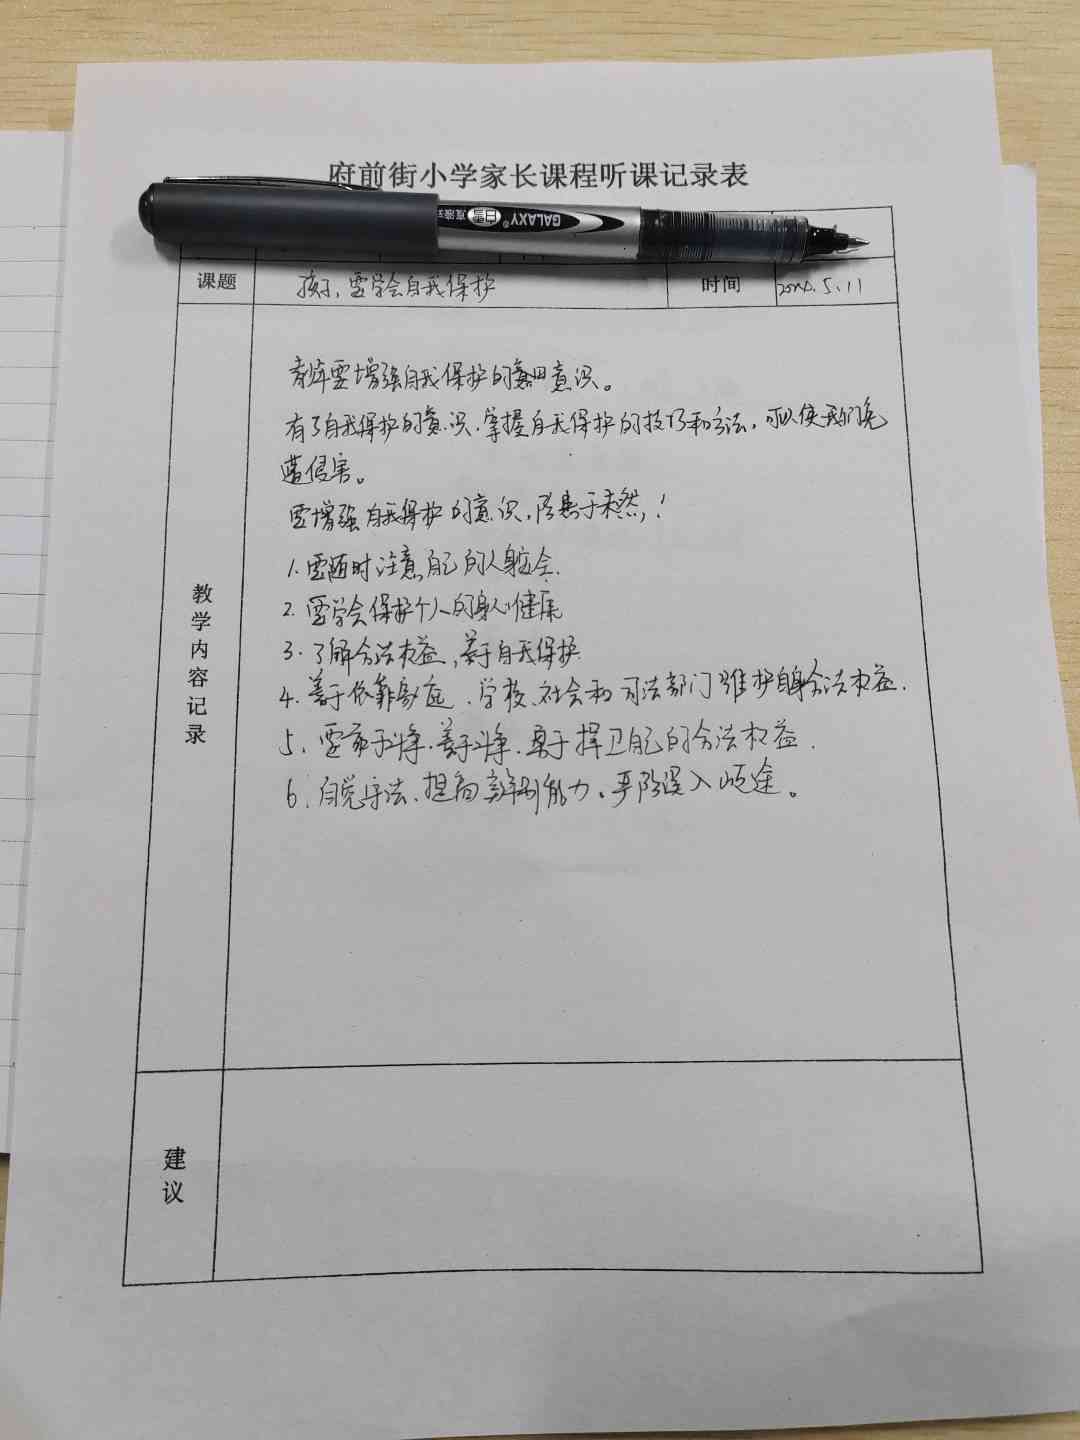 府前街小学家长课程听课记录表
GALAXY®
课题 孩子,要学会自我保护 时间 5.11
教学内容记录
要增强自我保护的意识。
有了自我保护的意识,掌握自我保护的技巧和方法,可以使我们免
遭侵害。
要增强自我保护的意识,防患于未然,!
1.要随时注意自己的人身安全.
2.要学会保护个人的身心健康
3.了解合法权益,善于自我保护.
4.善于依靠家庭、学校、社会和司法部门维护自身合法权益.
5.要敢于斗争.善于斗争.勇于捍卫自己的合法权益.
6.自觉守法、提高辨别能力。严防误入岐途。
建议